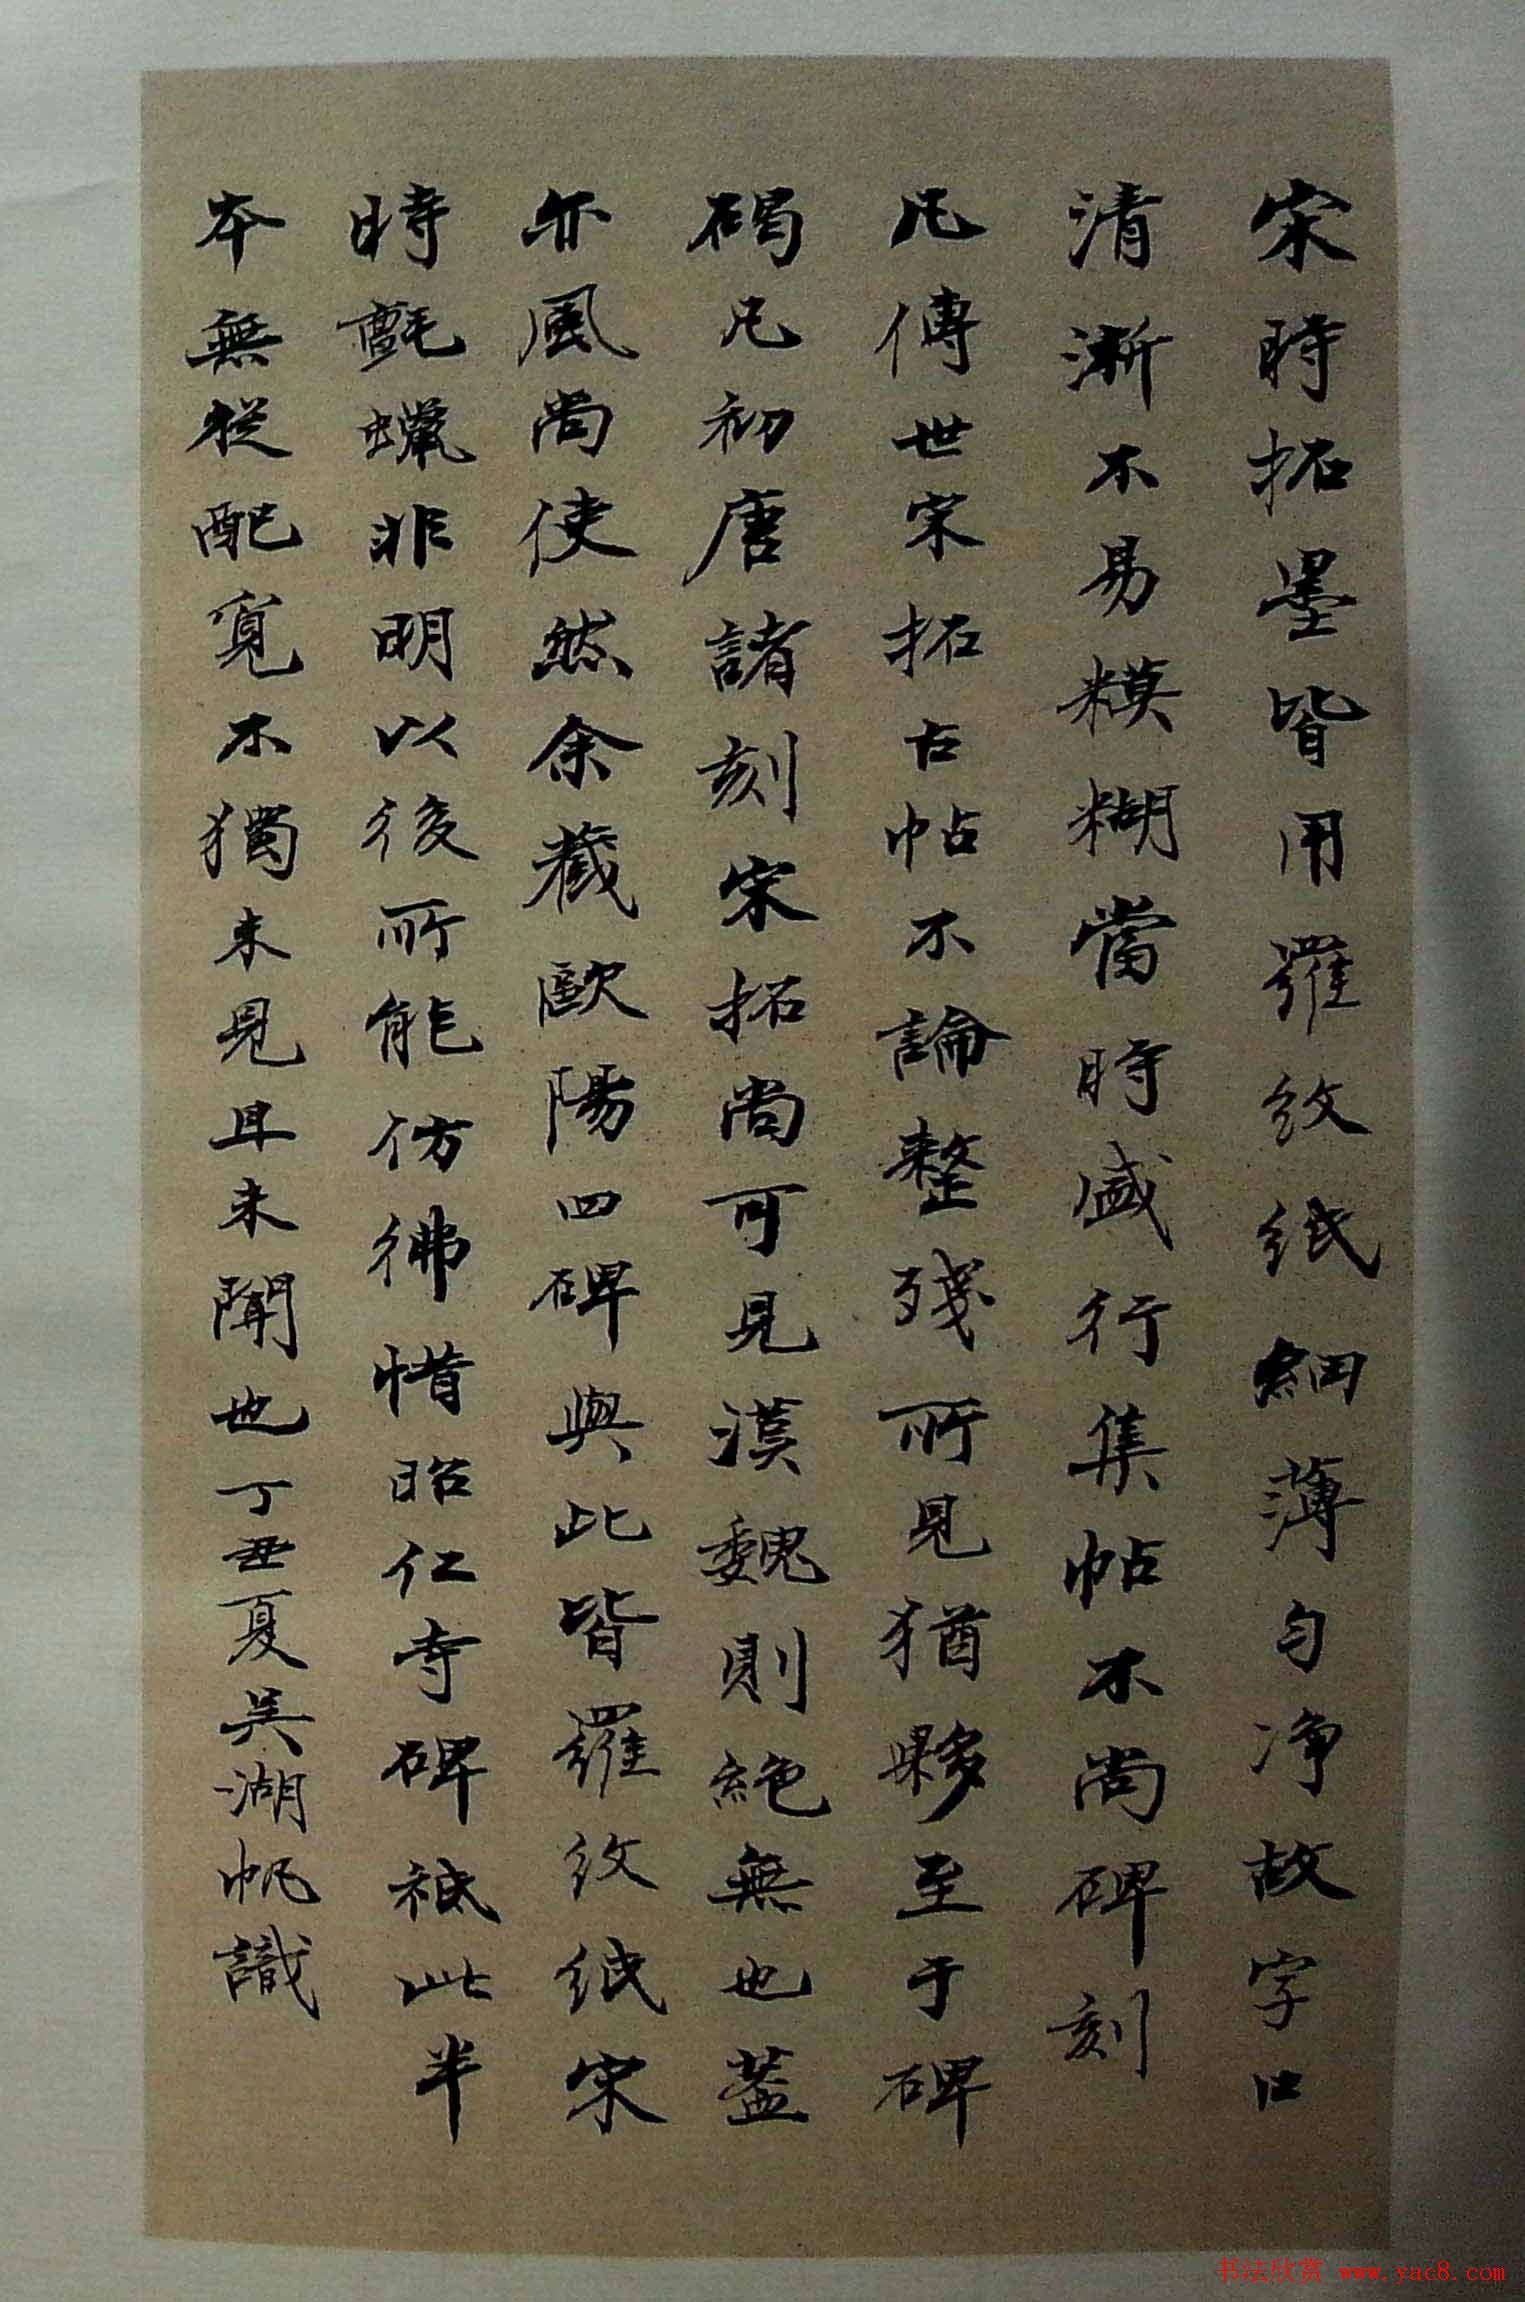 宋時拓墨皆用羅紋紙細薄勻净故字口
清漸不易糢糊當時盛行集帖不尚碑刻
凡傳世宋拓古帖不論整殘所見猶夥至于碑
碣凡初唐諸刻宋拓尚可見漢魏則絕無也蓋
亦風尚使然余藏歐陽四碑與此皆羅紋紙宋
時氈蠟非明以後所能仿彿惜昭仁寺碑祗此半
本無從配覓不獨未見且未聞也丁丑夏吴湖帆識
书法欣赏 www.yac8.com